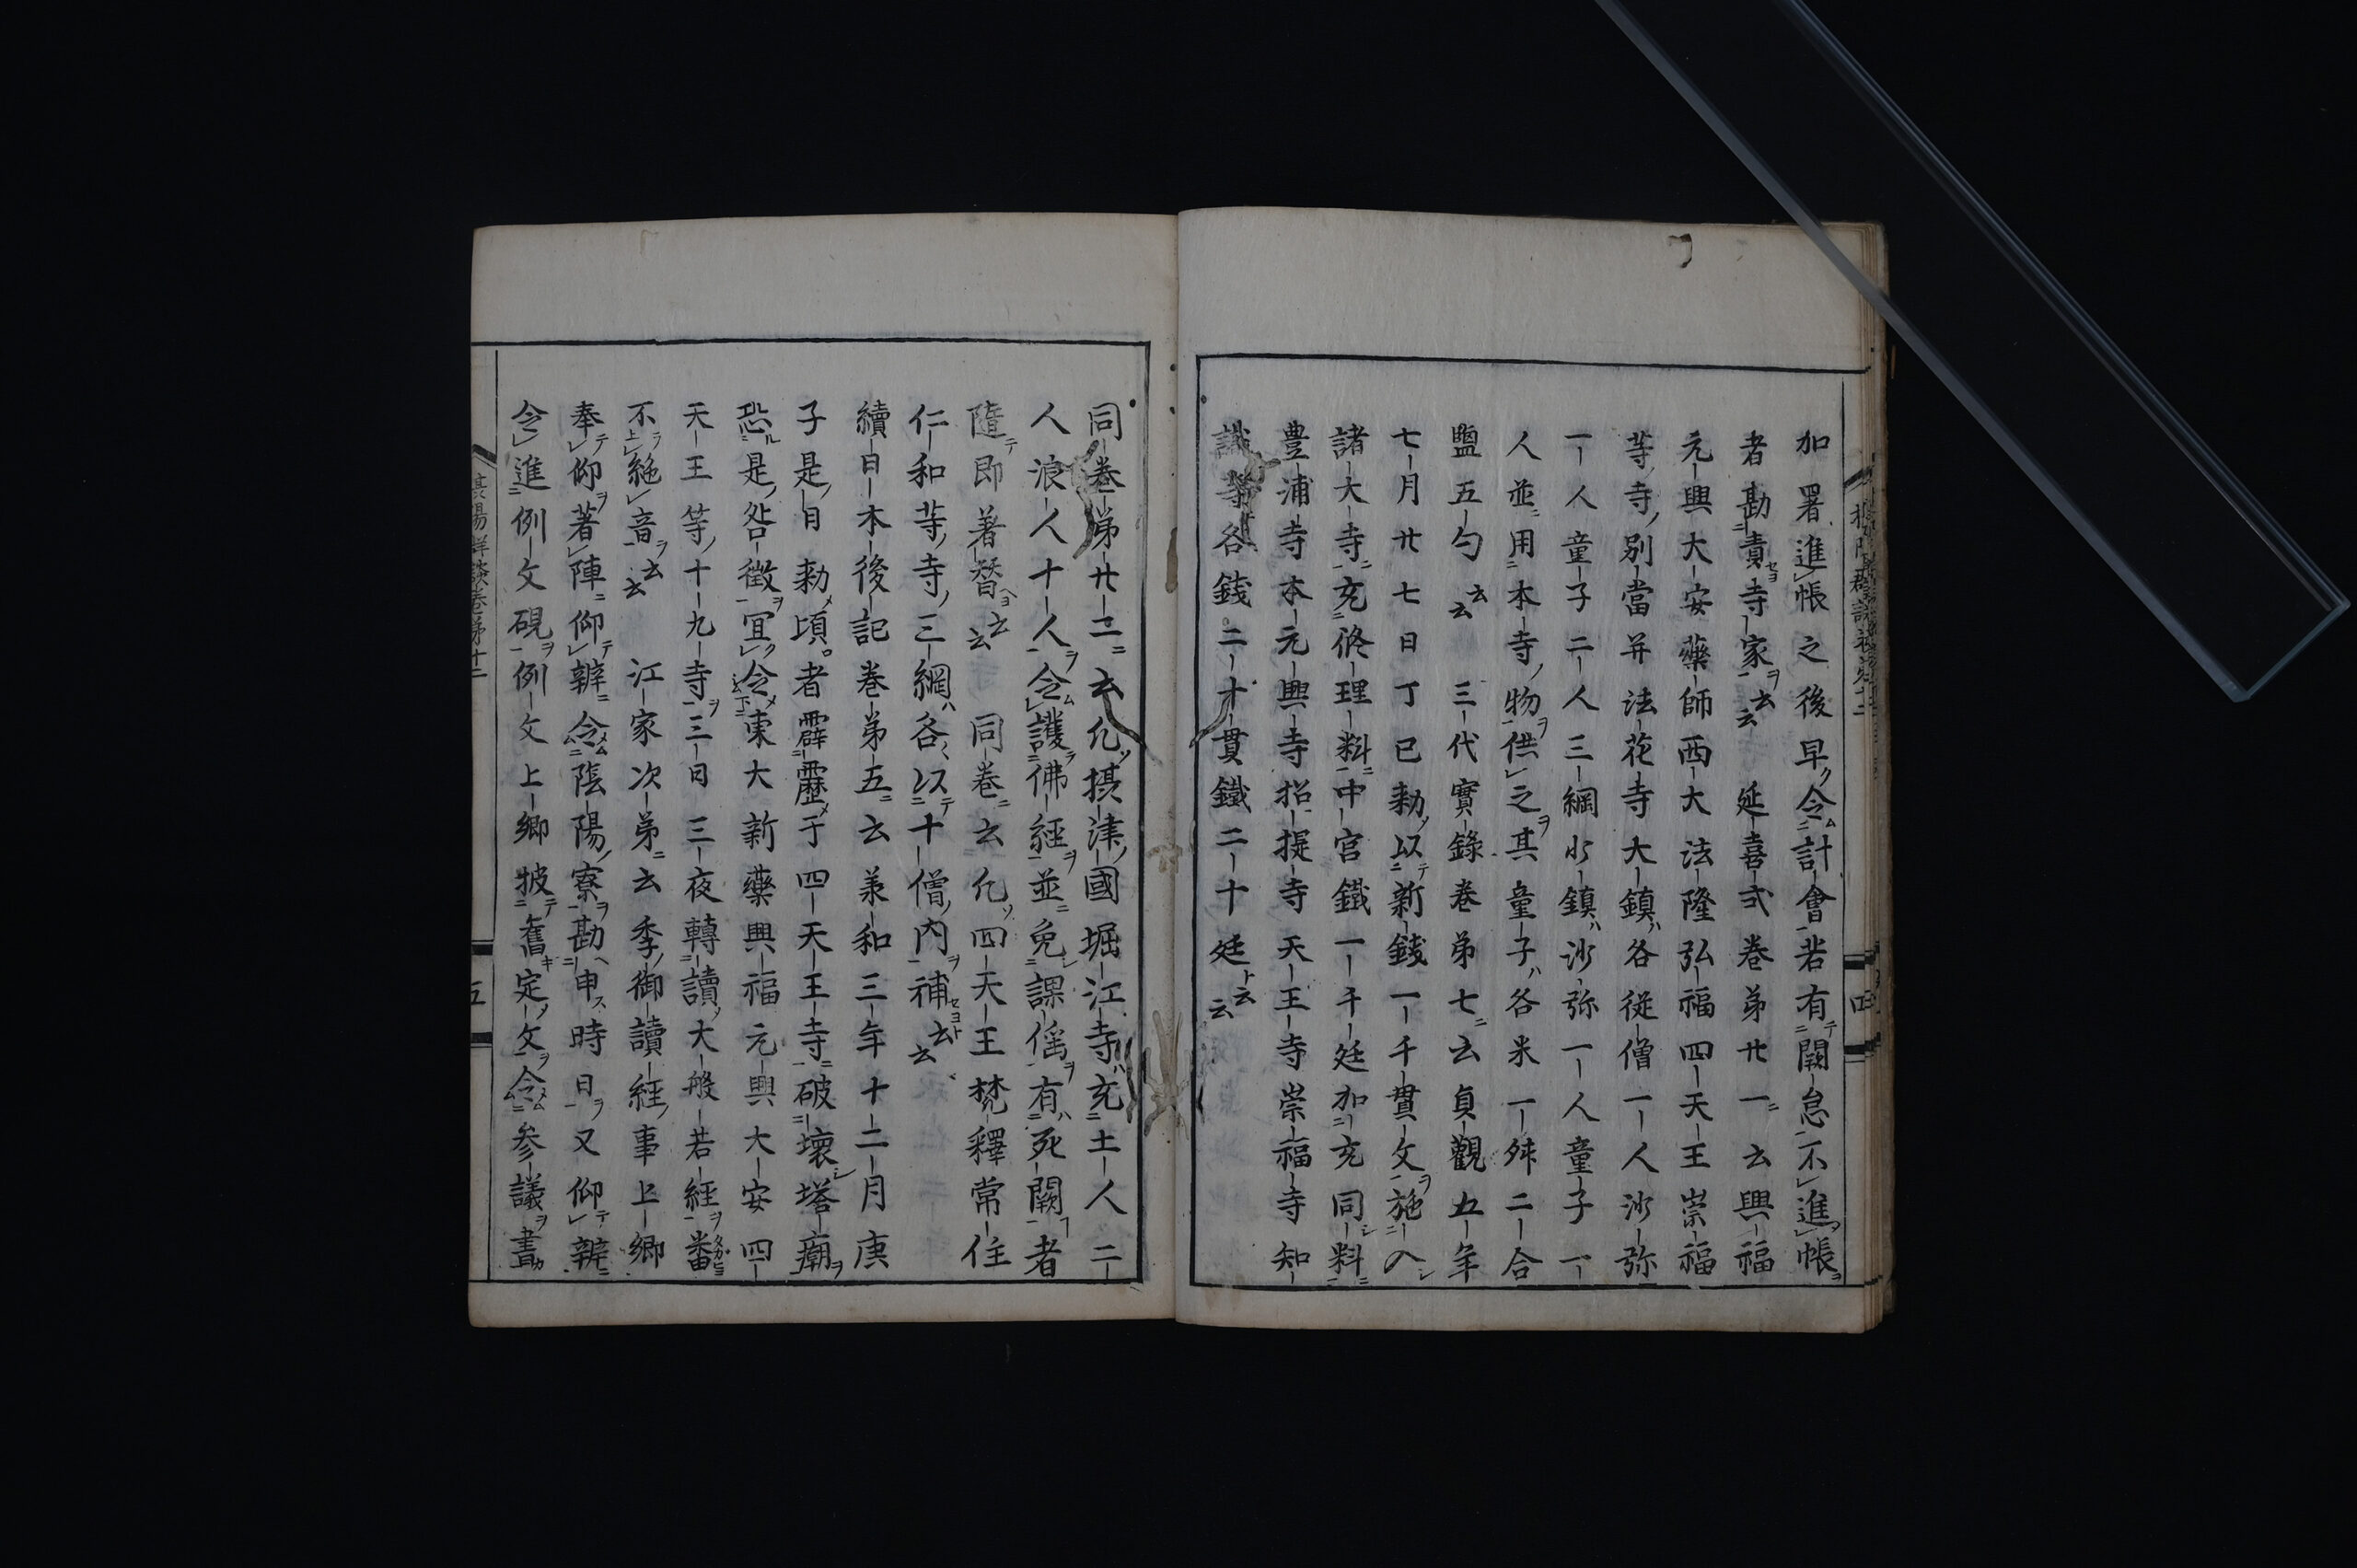 加署進帳之後早令計會若有闕怠不進帳
者勘責寺家云云 延喜式巻第廿一云興福
元興大安藥師西大法隆弘福四天王崇福
等寺別當并法花寺大鎮各従僧一人沙弥
一人童子二人三綱小鎮沙弥一人童子一
人並用本寺物供之其童子各米一舛二合
盬五勺云云 三代實錄巻第七云貞觀五年
七月廿七日丁巳勅以新錢一千貫文施入
諸大寺充修理料中宮鐵一千廷加充同料
豊浦寺本元興寺招提寺天王寺崇福寺知
識等各錢二十貫鐵二十廷云云
四
同巻第廿二云凡摂津國堀江寺充土人二
人浪人十人令護佛經並免課傜有死闕者
隨即著替云云 同巻云凡四天王梵釋常住
仁和等寺三綱各以十僧内補云云
續日本後記巻第五云義和三年十二月庚
子是月勅頃者霹靂于四天王寺破壞塔廟
恐是咎徵冝令東大新藥興福元興大安四
天王等十九寺三日三夜轉讀大般若經番
不絶音云云 江家次第云季御讀経事上卿
奉仰著陣仰辨令陰陽寮勘申時日又仰辨
令進例文硯例文上卿披舊定文令参議書
摂陽群談巻第十二
五